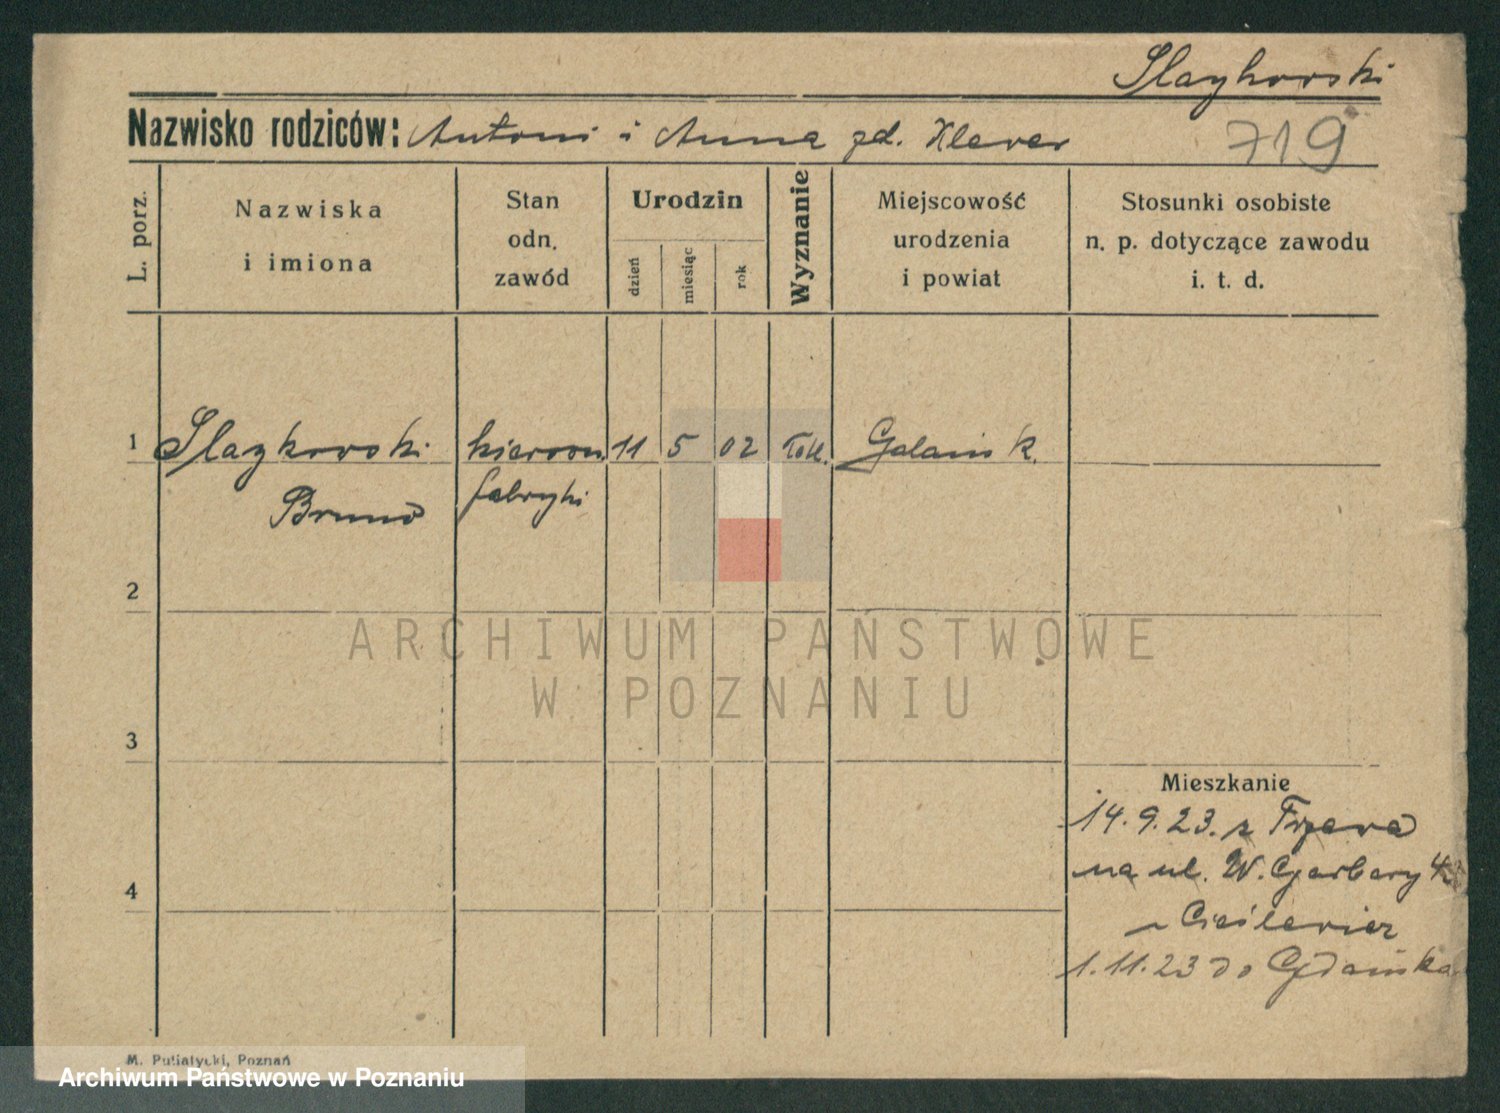 Slazkowski
Nazwisko rodziców: Antoni i Anna zd. Klever
719
L. porz.
Nazwiska
i imiona
Stan
odn.
zawód
Urodzin
dzień
miesiąc
rok
Wyznanie
Miejscowość
urodzenia
i powiat
Stosunki osobiste
n. p. dotyczące zawodu
i. t. d.
1 Slazkowski kierown 11 5 02 Gdańsk.
Bruno fabryki
2
ARCHIWUM PAŃSTWOWE
W POZNANIU
3
Mieszkanie
14.9.23. z
na ul. W. Garbary
Cieślewicz
1.11.23 do Gdańska
4
M. Putiatycki, Poznań
Archiwum Państwowe w Poznaniu